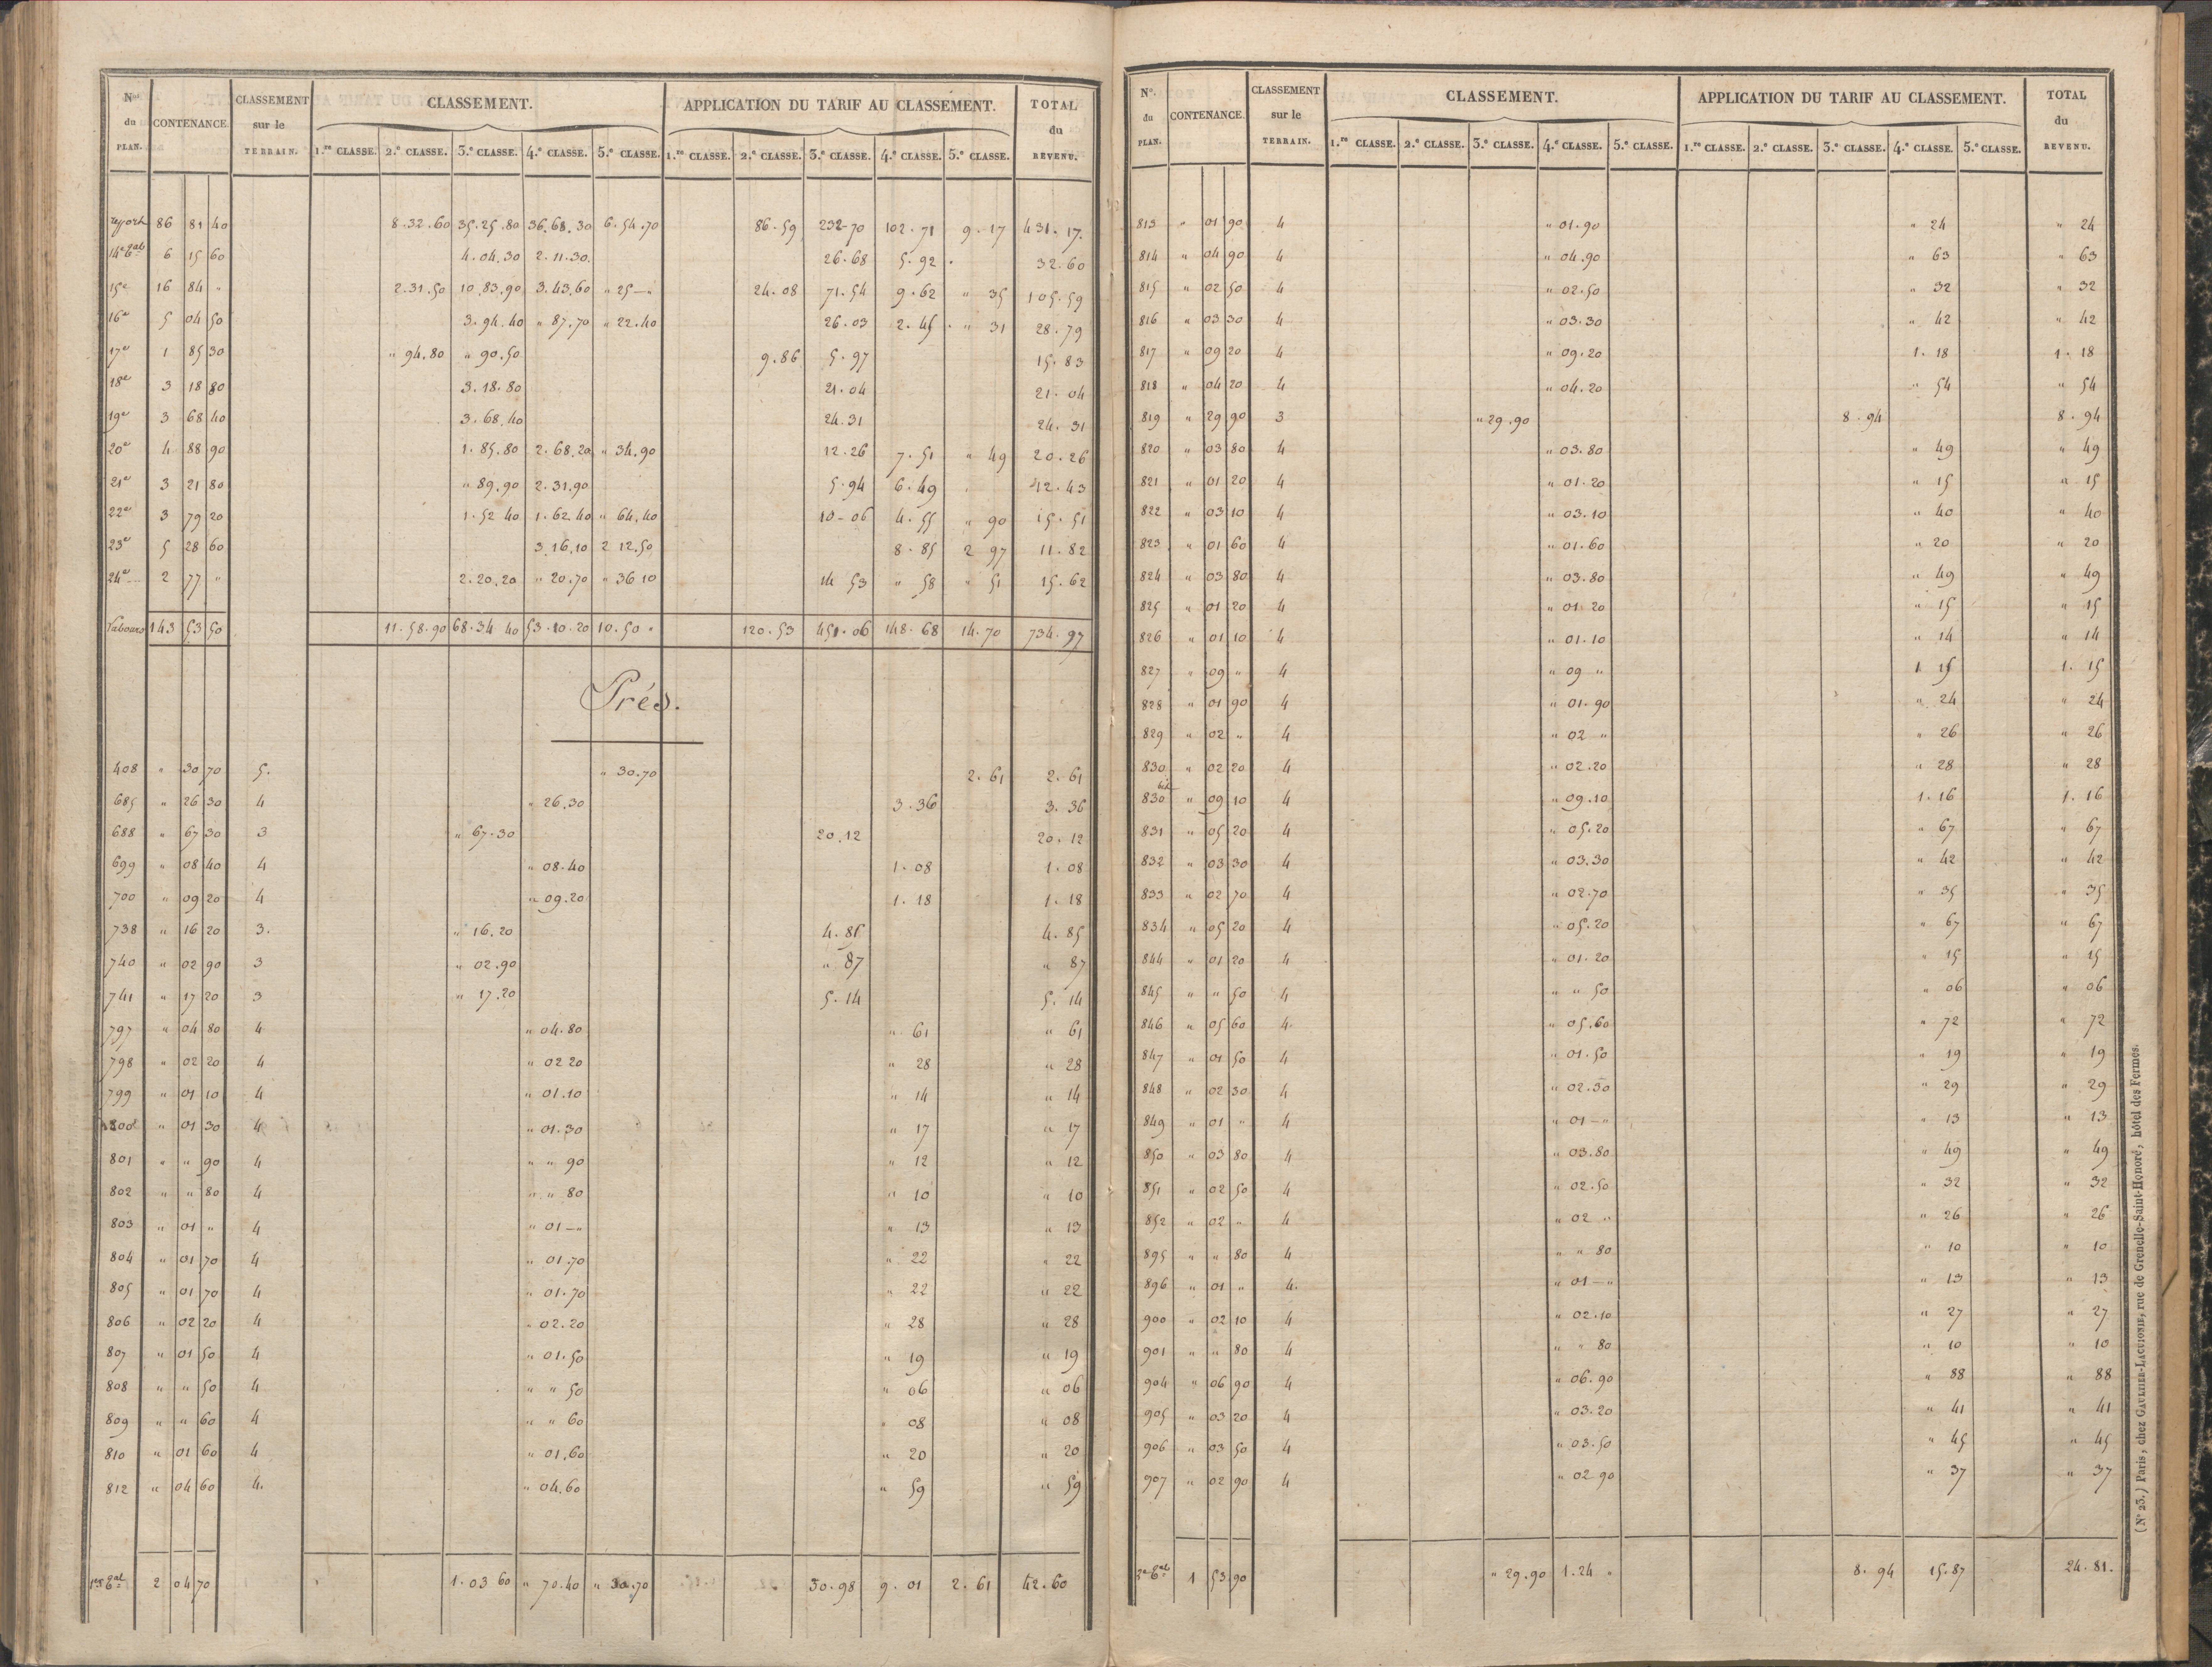 Nos du PLAN. CONTENANCE. CLASSEMENT sur le TERRAIN. CLASSEMENT. APPLICATION DU TARIF AU CLASSEMENT. TOTAL du REVENU.
1.re CLASSE. 2.e CLASSE. 3.e CLASSE. 4.e CLASSE. 5.e CLASSE. 1.re CLASSE. 2.e CLASSE. 3.e CLASSE. 4.e CLASSE. 5.e CLASSE.
report 86 81 40 8.32.60 35.25.80 36.68.30 6.54.70 86.59 232-70 102.71 9.17 431.17.
14e 6 15 60 4.04.30 2.11.30. 26.68 5.92 32.60
15e 16 84 " 2.31.50 10.83.90 3.43.60 " 25-" 24.08 71.54 9.62 " 35 105.59
16e 5 04 50 3.94.40 " 87.70 " 22.40 26.03 2.45 " 31 28.79
17e 1 85 30 " 94.80 " 90.50 9.86 5.97 15.83
18e 3 18 80 3.18.80 21.04 21.04
19e 3 68 40 3.68.40 24.31 24.31
20e 4 88 90 1.85.80 2.68.20 " 34.90 12.26 7.51 " 49 20.26
21e 3 21 80 " 89.90 2.31.90 5.94 6.49 12.43
22e 3 79 20 1.52 40 1.62.40 " 64.40 10-06 4.55 " 90 15.51
23e 5 28 60 3.16.10 2 12.50 8.85 2 97 11.82
24e 2 77 " 2.20.20 " 20.70 " 36 10 14 53 " 58 " 51 15.62
Labours 143 53 50 11.58.90 68.34 40 53.10.20 10.50 " 120.53 451.06 148.68 14.70 734.97
Prés.
408 " 30 70 5. " 30.70 2.61 2.61
685 " 26 30 4 " 26.30 3.36 3.36
688 " 67 30 3 " 67.30 20.12 20.12
699 " 08 40 4 " 08.40 1.08 1.08
700 " 09 20 4 " 09.20 1.18 1.18
738 " 16 20 3. " 16.20 4.85 4.85
740 " 02 90 3 " 02.90 " 87 " 87
741 " 17 20 3 " 17.20 5.14 5.14
797 " 04 80 4 " 04.80 " 61 " 61
798 " 02 20 4 " 02 20 " 28 " 28
799 " 01 10 4 " 01.10 " 14 " 14
800 " 01 30 4 " 01.30 " 17 " 17
801 " " 90 4 " " 90 " 12 " 12
802 " " 80 4 " " 80 " 10 " 10
803 " 01 " 4 " 01-" " 13 " 13
804 " 01 70 4 " 01.70 " 22 " 22
805 " 01 70 4 " 01.70 " 22 " 22
806 " 02 20 4 " 02.20 " 28 " 28
807 " 01 50 4 " 01.50 " 19 " 19
808 " " 50 4 " " 50 " 06 " 06
809 " " 60 4 " " 60 " 08 " 08
810 " 01 60 4 " 01.60 " 20 " 20
812 " 04 60 4. " 04.60 " 59 " 59
2 04 70 1.03 60 " 70.40 " 30.70 30.98 9.01 2.61 42.60
Nos du PLAN. CONTENANCE. CLASSEMENT sur le TERRAIN. CLASSEMENT. APPLICATION DU TARIF AU CLASSEMENT. TOTAL du REVENU.
1.re CLASSE. 2.e CLASSE. 3.e CLASSE. 4.e CLASSE. 5.e CLASSE. 1.re CLASSE. 2.e CLASSE. 3.e CLASSE. 4.e CLASSE. 5.e CLASSE.
813 " 01 90 4 " 01.90 " 24 " 24
814 " 04 90 4 " 04.90 " 63 " 63
815 " 02 50 4 " 02.50 " 32 " 32
816 " 03 30 4 " 03.30 " 42 " 42
817 " 09 20 4 " 09.20 1.18 1.18
818 " 04 20 4 " 04.20 " 54 " 54
819 " 29 90 3 " 29.90 8.94 8.94
820 " 03 80 4 " 03.80 " 49 " 49
821 " 01 20 4 " 01.20 " 15 " 15
822 " 03 10 4 " 03.10 " 40 " 40
823 " 01 60 4 " 01.60 " 20 " 20
824 " 03 80 4 " 03.80 " 49 " 49
825 " 01 20 4 " 01.20 " 15 " 15
826 " 01 10 4 " 01.10 " 14 " 14
827 " 09 " 4 " 09 " 1 15 1.15
828 " 01 90 4 " 01.90 " 24 " 24
829 " 02 " 4 " 02 " " 26 " 26
830 " 02 20 4 " 02.20 " 28 " 28
830 bis " 09 10 4 " 09.10 1.16 1.16
831 " 05 20 4 " 05.20 " 67 " 67
832 " 03 30 4 " 03.30 " 42 " 42
833 " 02 70 4 " 02.70 " 35 " 35
834 " 05 20 4 " 05.20 " 67 " 67
844 " 01 20 4 " 01.20 " 15 " 15
845 " " 50 4 " " 50 " 06 " 06
846 " 05 60 4. " 05.60 " 72 " 72
847 " 01 50 4 " 01.50 " 19 " 19
848 " 02 30 4 " 02.30 " 29 " 29
849 " 01 " 4 " 01-" " 13 " 13
850 " 03 80 4 " 03.80 " 49 " 49
851 " 02 50 4 " 02.50 " 32 " 32
852 " 02 " 4 " 02 " " 26 " 26
895 " " 80 4 " " 80 " 10 " 10
896 " 01 " 4. " 01-" " 13 " 13
900 " 02 10 4 " 02.10 " 27 " 27
901 " " 80 4 " " 80 " 10 " 10
904 " 06 90 4 " 06.90 " 88 " 88
905 " 03 20 4 " 03.20 " 41 " 41
906 " 03 50 4 " 03.50 " 45 " 45
907 " 02 90 4 " 02 90 " 37 " 37
1 53 90 " 29.90 1.24 " 8.94 15.87 24.81.
(N° 23.) Paris, chez GAULTIER-LAGUIONIE, rue de Grenelle-Saint-Honoré, hôtel des Fermes.